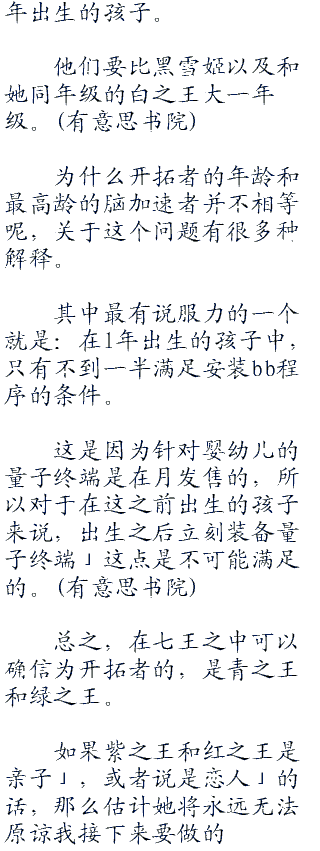 年出生的孩子。
他们要比黑雪姬以及和
她同年级的白之王大一年
级。(有意思书院)
为什么开拓者的年龄和
最高龄的脑加速者并不相等
呢，关于这个问题有很多种
解释。
其中最有说服力的一个
就是：在1年出生的孩子中，
只有不到一半满足安装bb程
序的条件。
这是因为针对婴幼儿的
量子终端是在月发售的，所
以对于在这之前出生的孩子
来说，出生之后立刻装备量
子终端」这点是不可能满足
的。(有意思书院)
总之，在七王之中可以
确信为开拓者的，是青之王
和绿之王。
如果紫之王和红之王是
亲子」，或者说是恋人」的
话，那么估计她将永远无法
原谅我接下来要做的